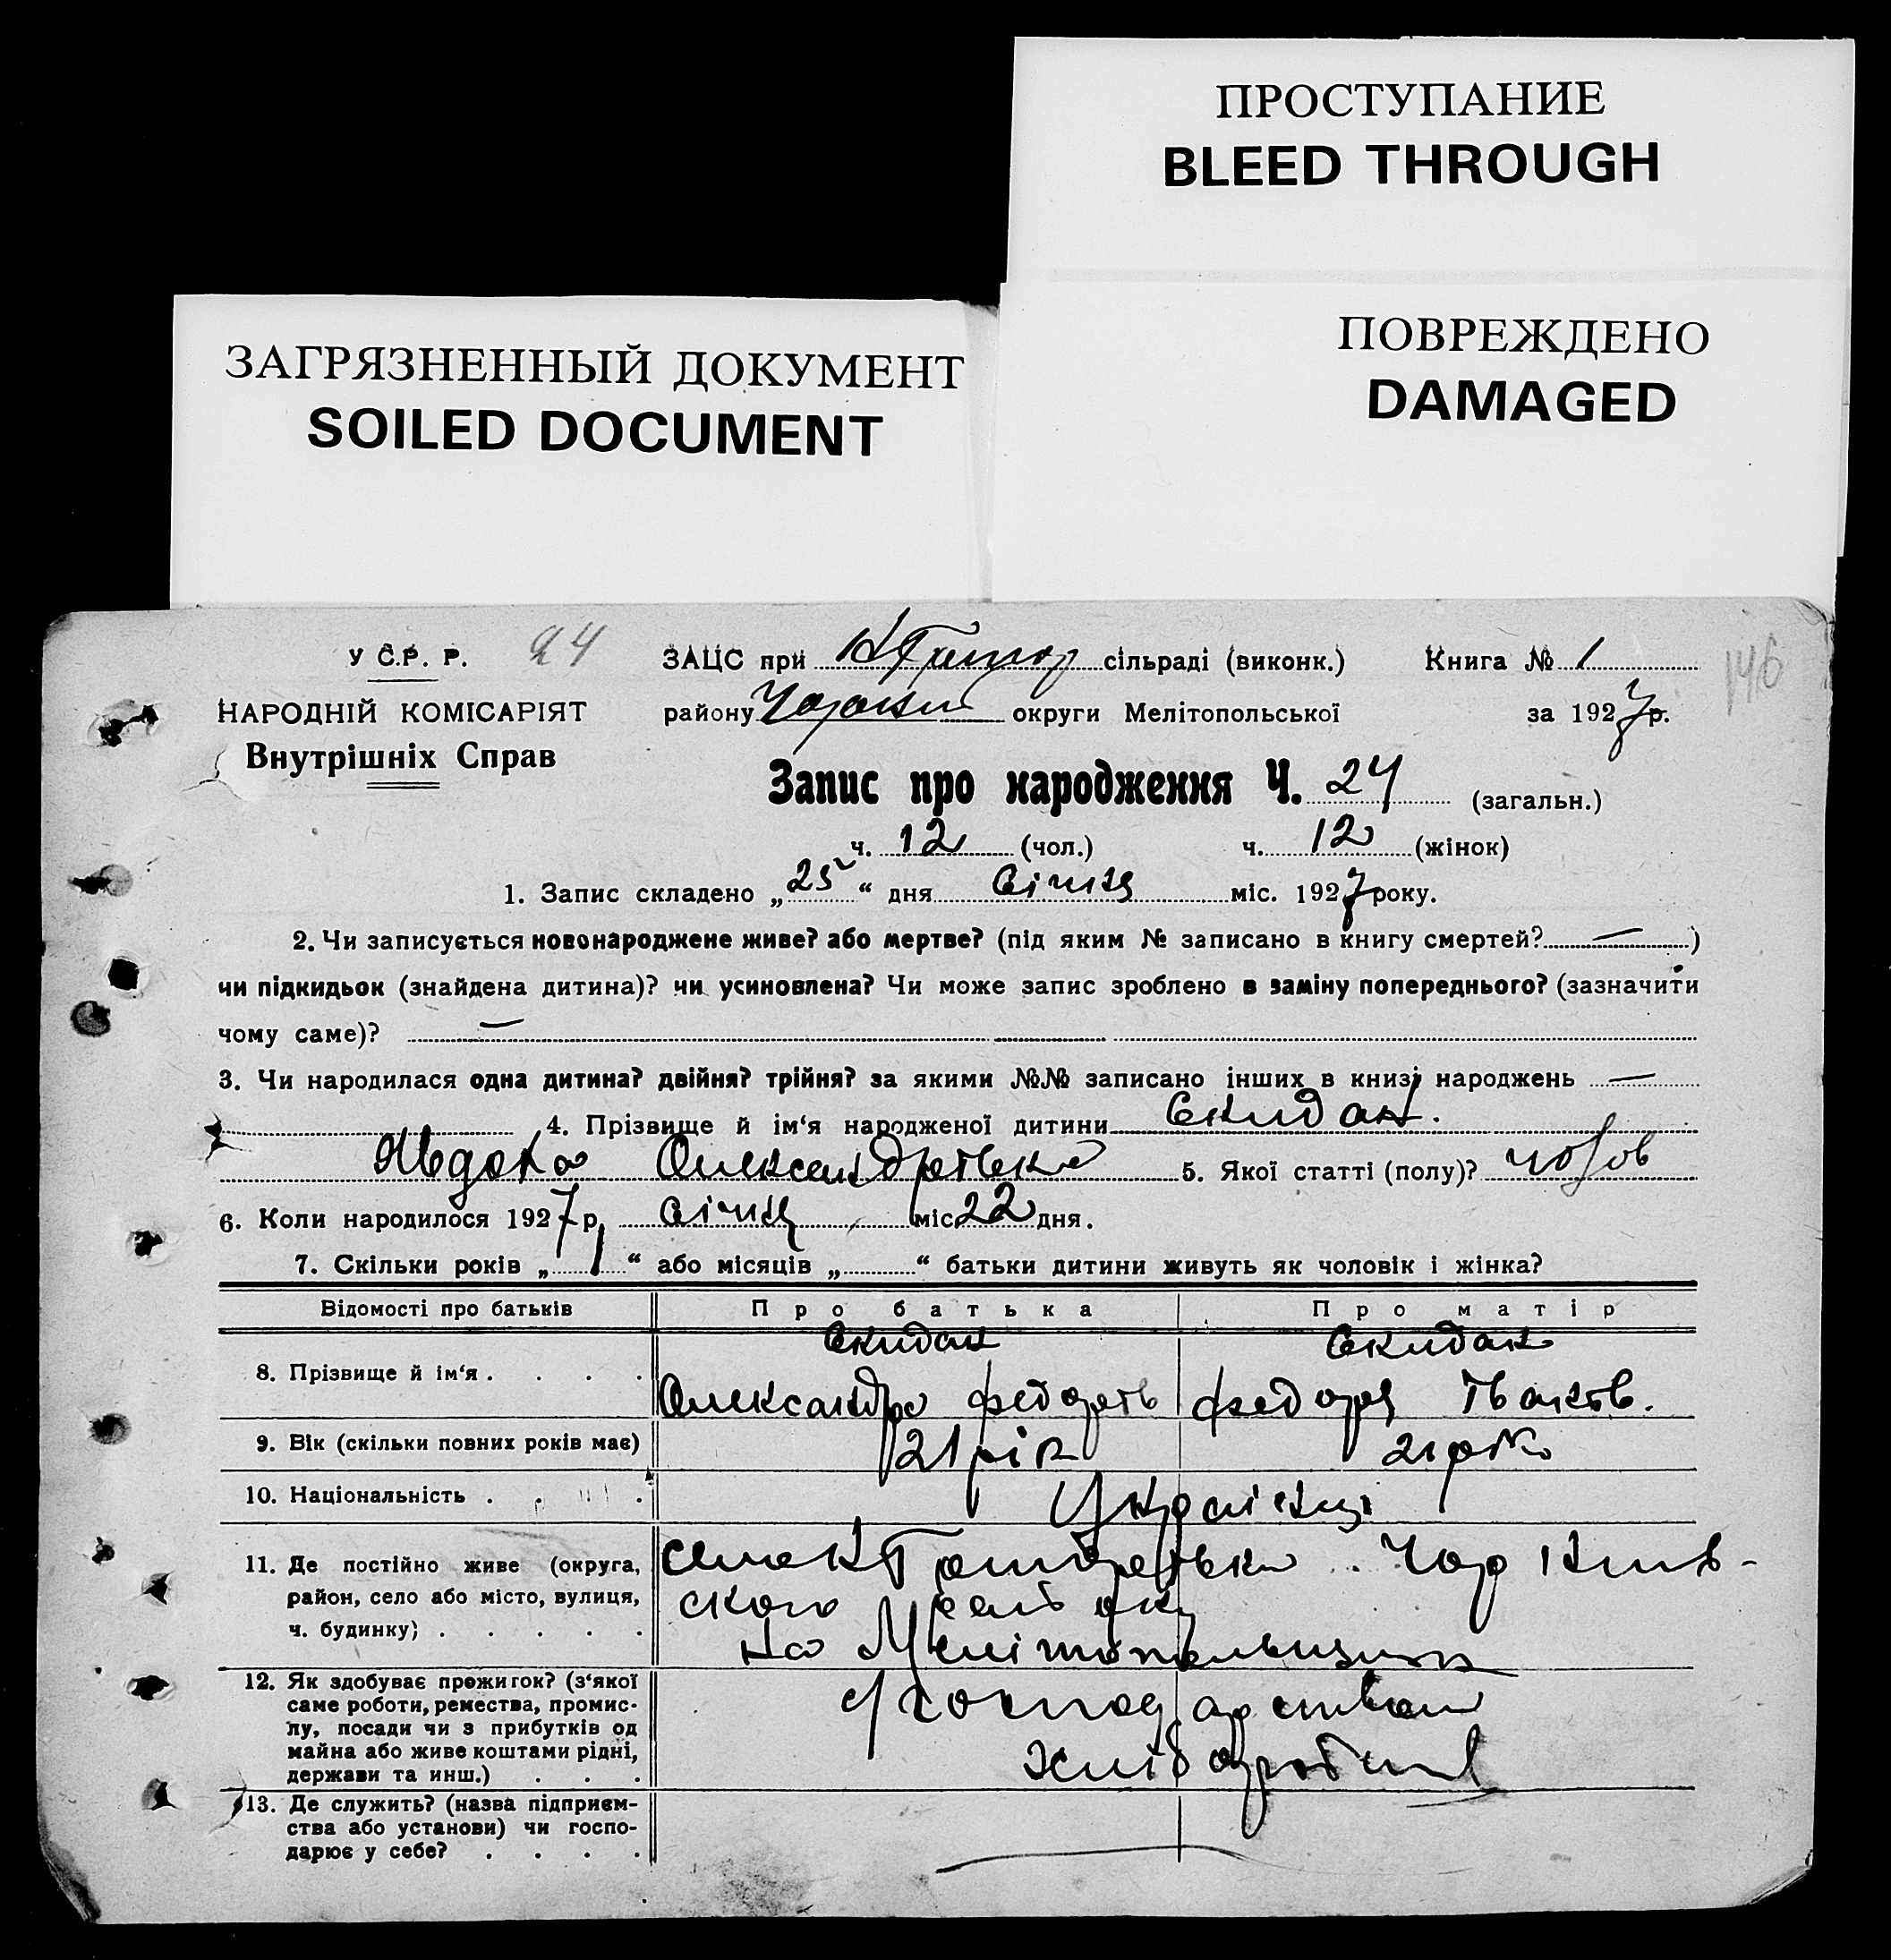 ПРОСТУПАНИЕ
BLEED THROUGH
ЗАГРЯЗНЕННЫЙ ДОКУМЕНТ
SOILED DOCUMENT
ПОВРЕЖДЕНО
DAMAGED
У С.Р. Р. 24 ЗАЦС при сільраді (виконк.) Книга № 1
146
НАРОДНІЙ КОМІСАРІЯТ
району округи Мелітопольської за 1927р.
Внутрішніх Справ
Запис про народження Ч. 24 (загальн.)
ч. 12 (чол.) ч. 12 (жінок)
1. Запис складено „25“ дня Січня міс. 1927 року.
2. Чи записується новонароджене живе? або мертве? (під яким № записано в книгу смертей? — )
чи підкидьок (знайдена дитина)? чи усиновлена? Чи може запис зроблено в заміну попереднього? (зазначити
чому саме)? —
3. Чи народилася одна дитина? двійня? трійня? за якими №№ записано інших в книзі народжень —
4. Прізвище й ім‘я народженої дитини Скидан.
5. Якої статті (полу)? чолов
6. Коли народилося 1927 р. Січня міс. 22 дня.
7. Скільки років „1“ або місяців „ “ батьки дитини живуть як чоловік і жінка?
Відомості про батьків Про батька Про матір
Скидан Скидан
8. Прізвище й ім‘я . . . . Олександр Федоров Федора Іванов.
9. Вік (скільки повних років має) 21 рік 21 рік
10. Національність . . . . Українці
11. Де постійно живе (округа,
район, село або місто, вулиця,
ч. будинку; . . . . .
ского району
на Мелітопольщині
12. Як здобуває прожигок? (з‘якої
саме роботи, ремества, промис-
лу, посади чи з прибутків од
майна або живе коштами рідні,
держави та инш.) . . .
хлібороб
13. Де служить? (назва підприєм-
ства або установи) чи госпо-
дарює у себе? . . . .